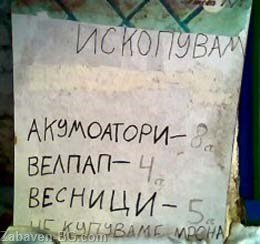 ИСКОПУВАМ
АКУМОАТОРИ – 8 а
ВЕЛПАП – 4 а
ВЕСНИЦИ – 5 а
НЕ КУПУВАМЕ МРОНА
Zabaven-BG.com